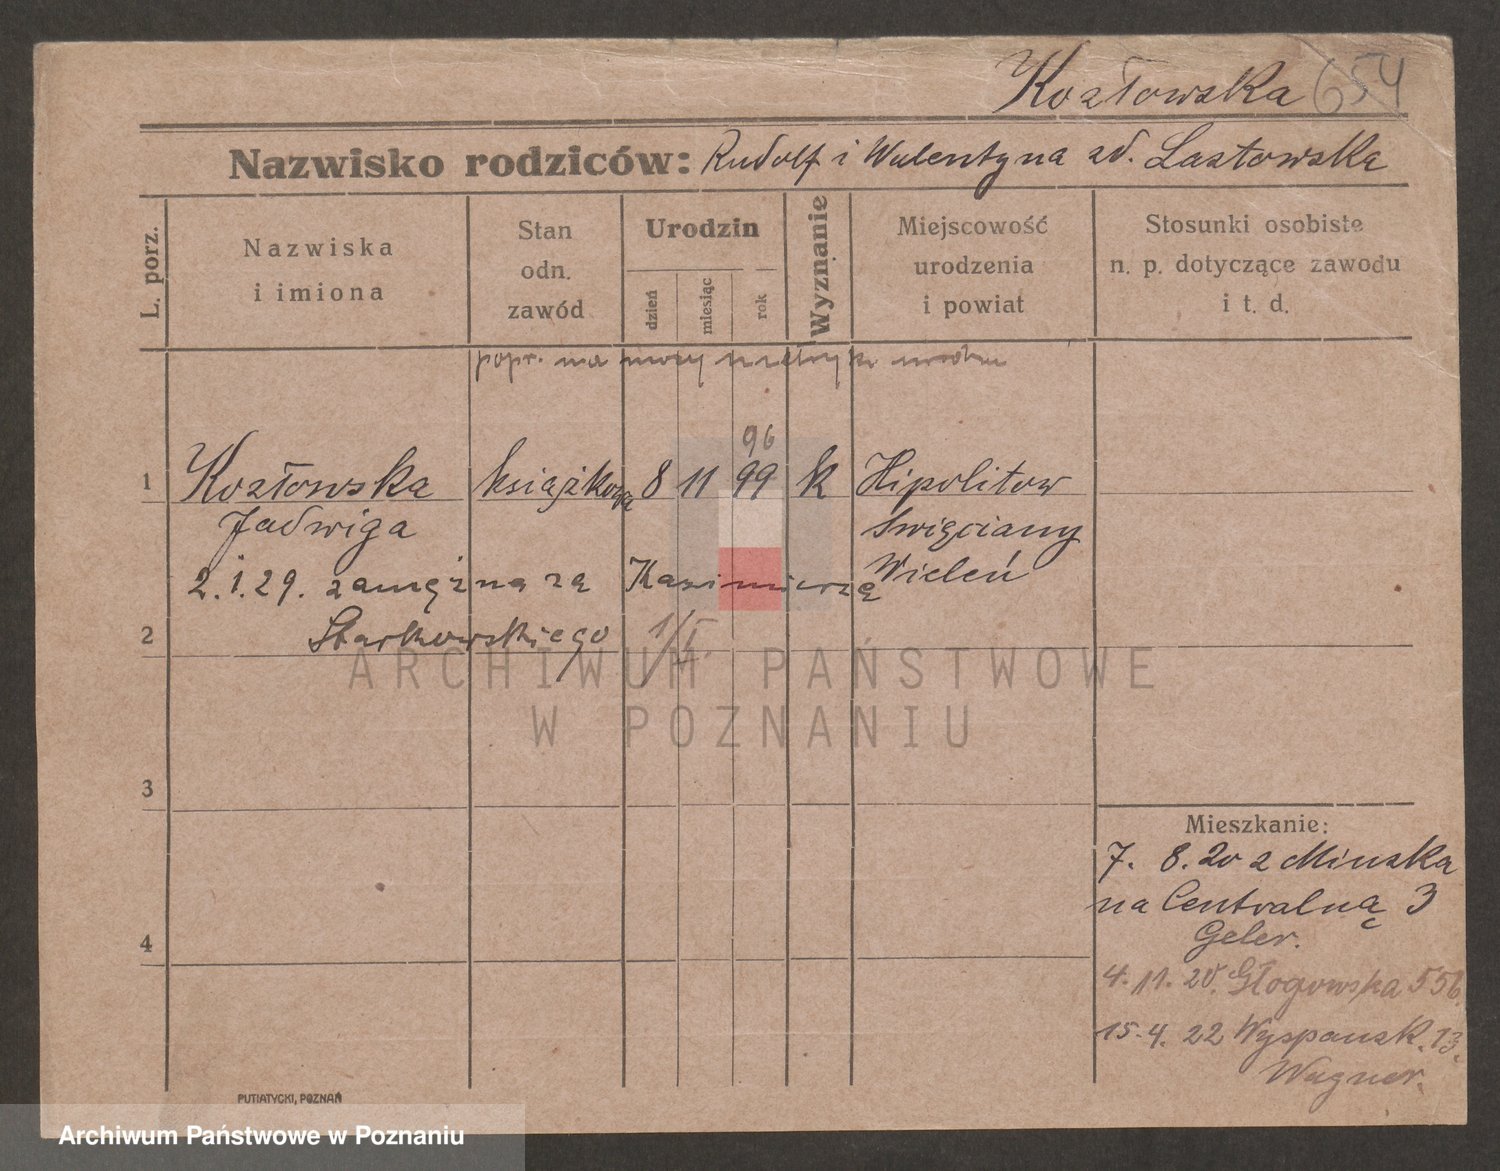 Kozłowska 654
Nazwisko rodziców: Rudolf i Walentyna zd. Lastowska
L. porz.
Nazwiska
i imiona
Stan
odn.
zawód
Urodzin
dzień
miesiąc
rok
Wyznanie
Miejscowość
urodzenia
i powiat
Stosunki osobiste
n. p. dotyczące zawodu
i t. d.
popr. na mocy metryki urodzin
96
1 Kozłowska książkowa 8 11 99 k Hipolitow
Jadwiga Swięciany
2.1.29. zamężna za Kazimierza Wileń
2 Starkowskiego
ARCHIWUM PAŃSTWOWE
W POZNANIU
3
Mieszkanie:
7. 8. 20 z Minska
na Centralną 3
Geler.
4
4. 11. 20. Głogowska 55b.
15. 4. 22 Wyspansk. 13.
Wagner.
PUTIATYCKI, POZNAŃ
Archiwum Państwowe w Poznaniu